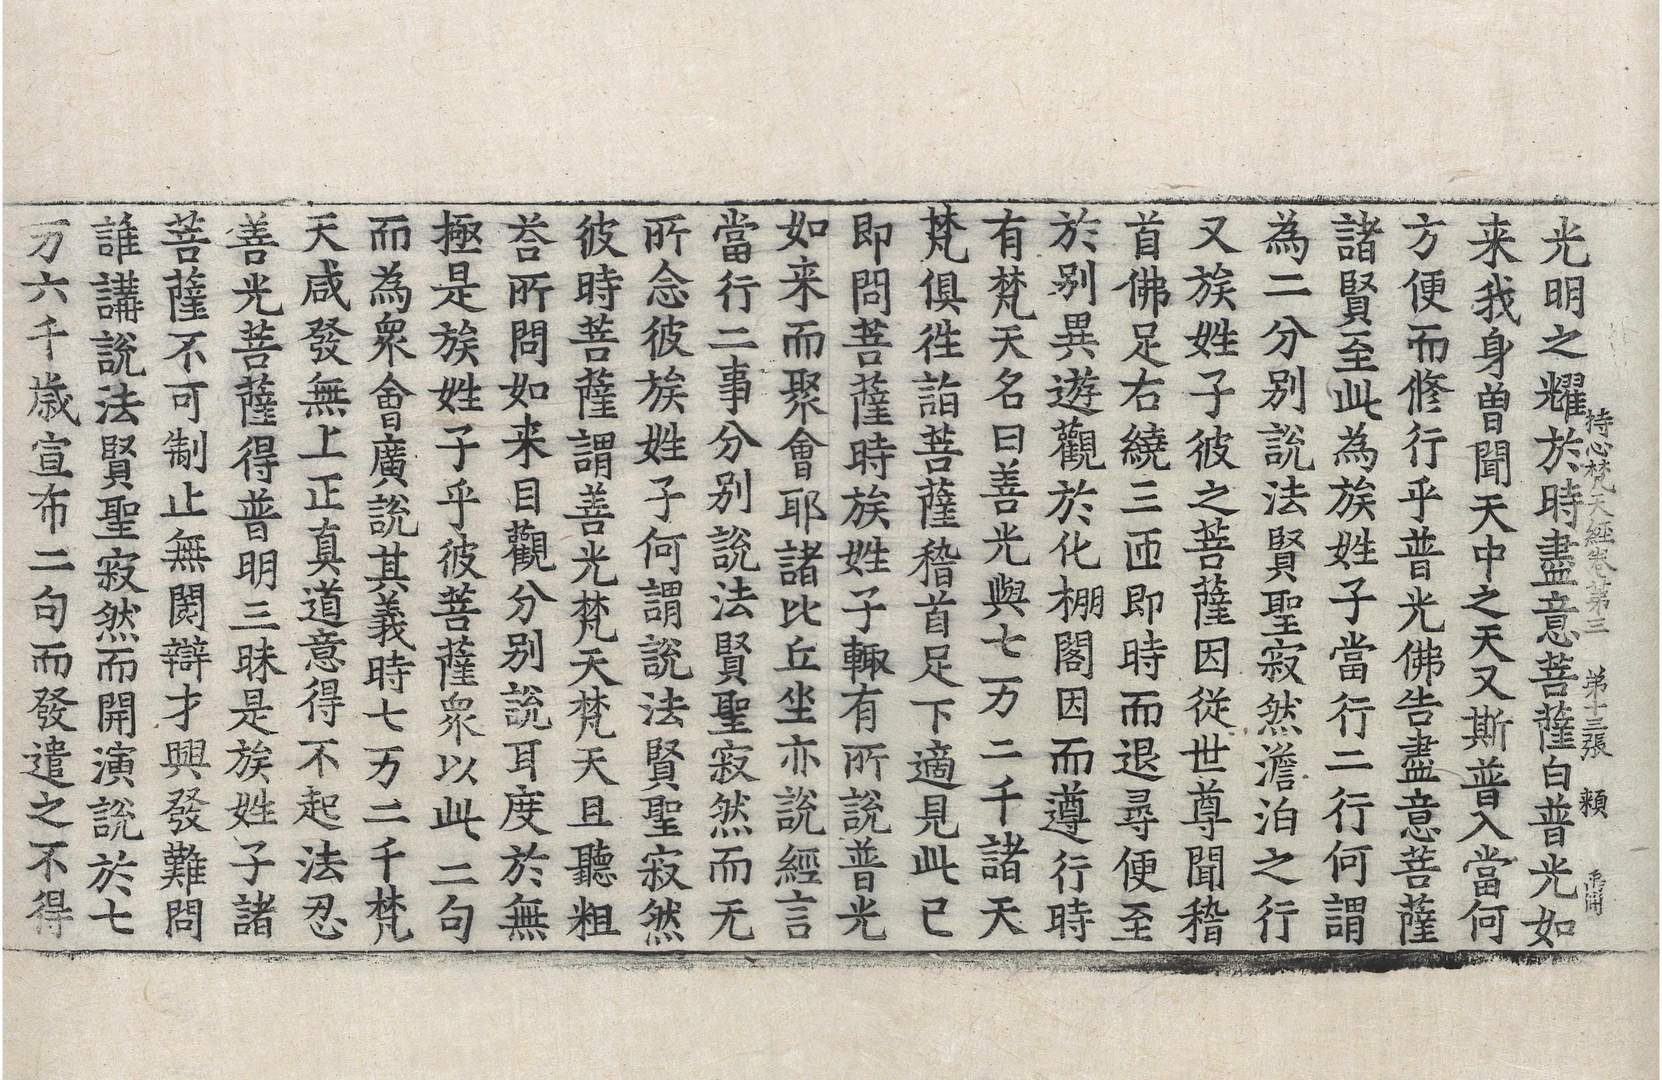 持心梵天經卷第三 第十三張 賴
光明之耀於時盡意菩薩白普光如
来我身曽聞天中之天又斯普入當何
方便而修行乎普光佛告盡意菩薩
諸賢至此為族姓子當行二行何謂
為二分别說法賢聖寂然澹泊之行
又族姓子彼之菩薩因従世尊聞稽
首佛足右繞三匝即時而退尋便至
於别異遊觀於化棚閣因而遵行時
有梵天名曰善光與七万二千諸天
梵俱徃詣菩薩稽首足下適見此已
即問菩薩時族姓子輙有所說普光
如来而聚會耶諸比丘坐亦說經言
當行二事分别說法賢聖寂然而无
所念彼族姓子何謂說法賢聖寂然
彼時菩薩謂善光梵天梵天且聽粗
荅所問如来目觀分别說耳度於無
極是族姓子乎彼菩薩衆以此二句
而為衆會廣說其義時七万二千梵
天咸發無上正真道意得不起法忍
善光菩薩得普明三昧是族姓子諸
菩薩不可制止無閡辯才興發難問
誰講說法賢聖寂然而開演說於七
万六千歳宣布二句而發遣之不得